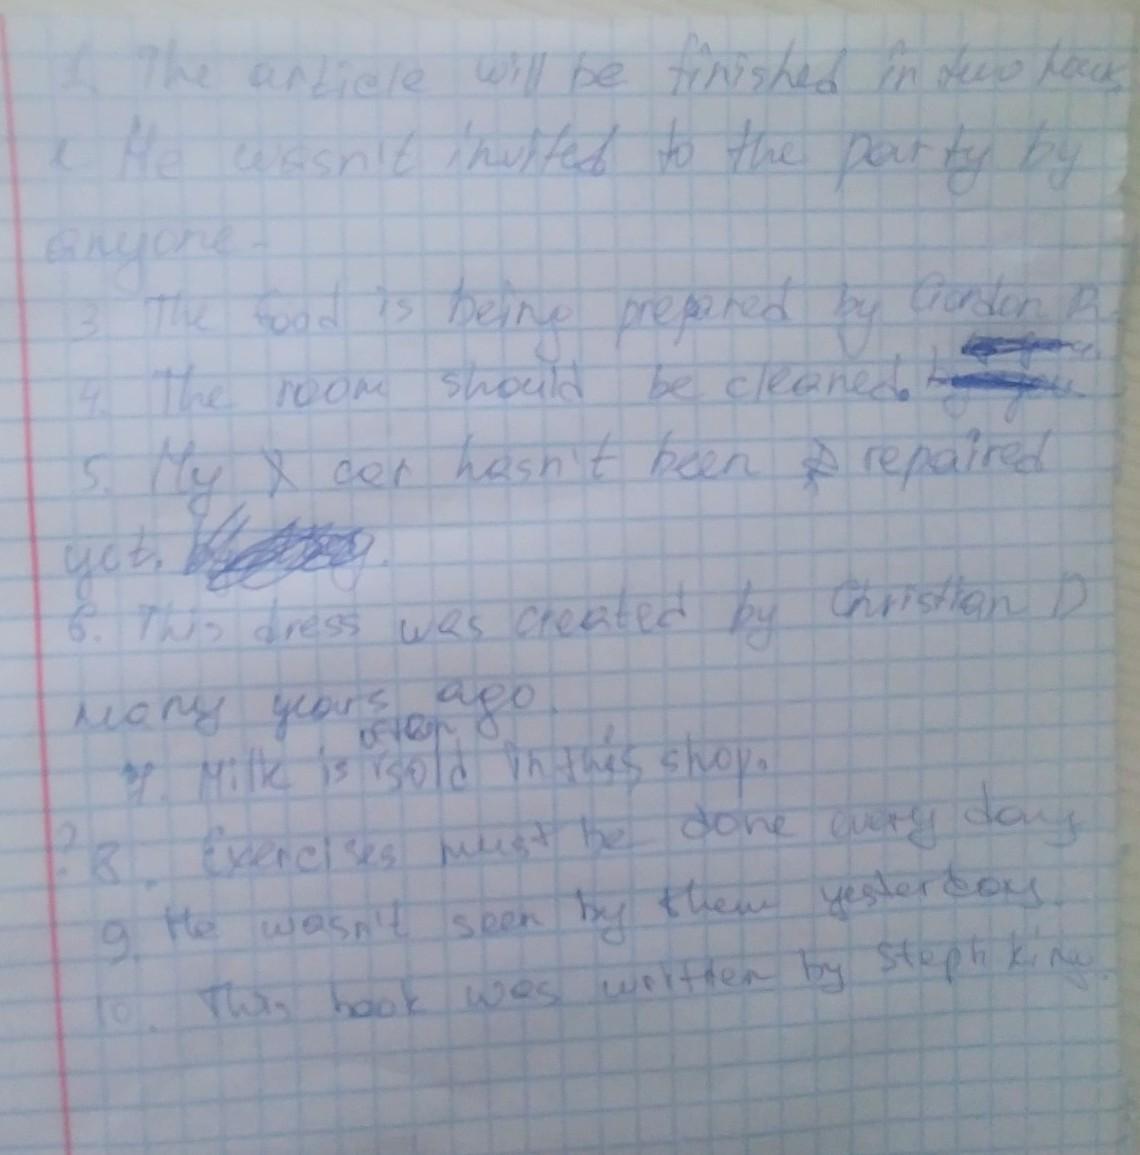 1. The article will be finished in two hour
2. He wasn't invited to the party by
anyone.
3. The food is being prepared by Gordon R.
4. The room should be cleaned.
5. My car hasn't been repaired
yet.
6. This dress was created by Christian D
many years ago.
often
7. Milk is sold in this shop.
? 8. Exercises must be done every day
9. He wasn't seen by them yesterday.
10. This book was written by Steph King.